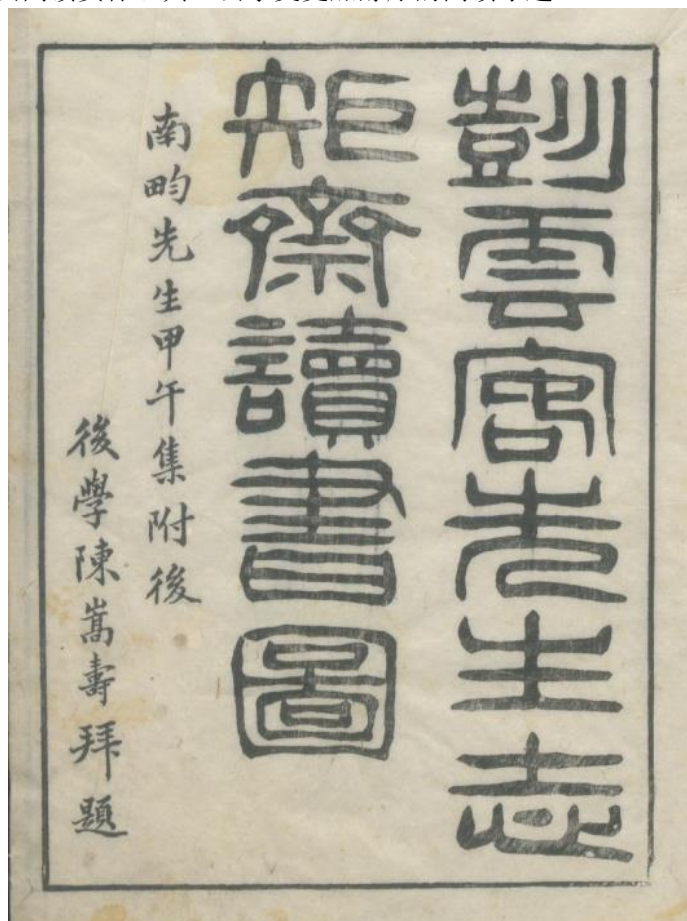 彭雲客先生志
矩齋讀書圖
南畇先生甲午集附後
後學陳嵩壽拜題